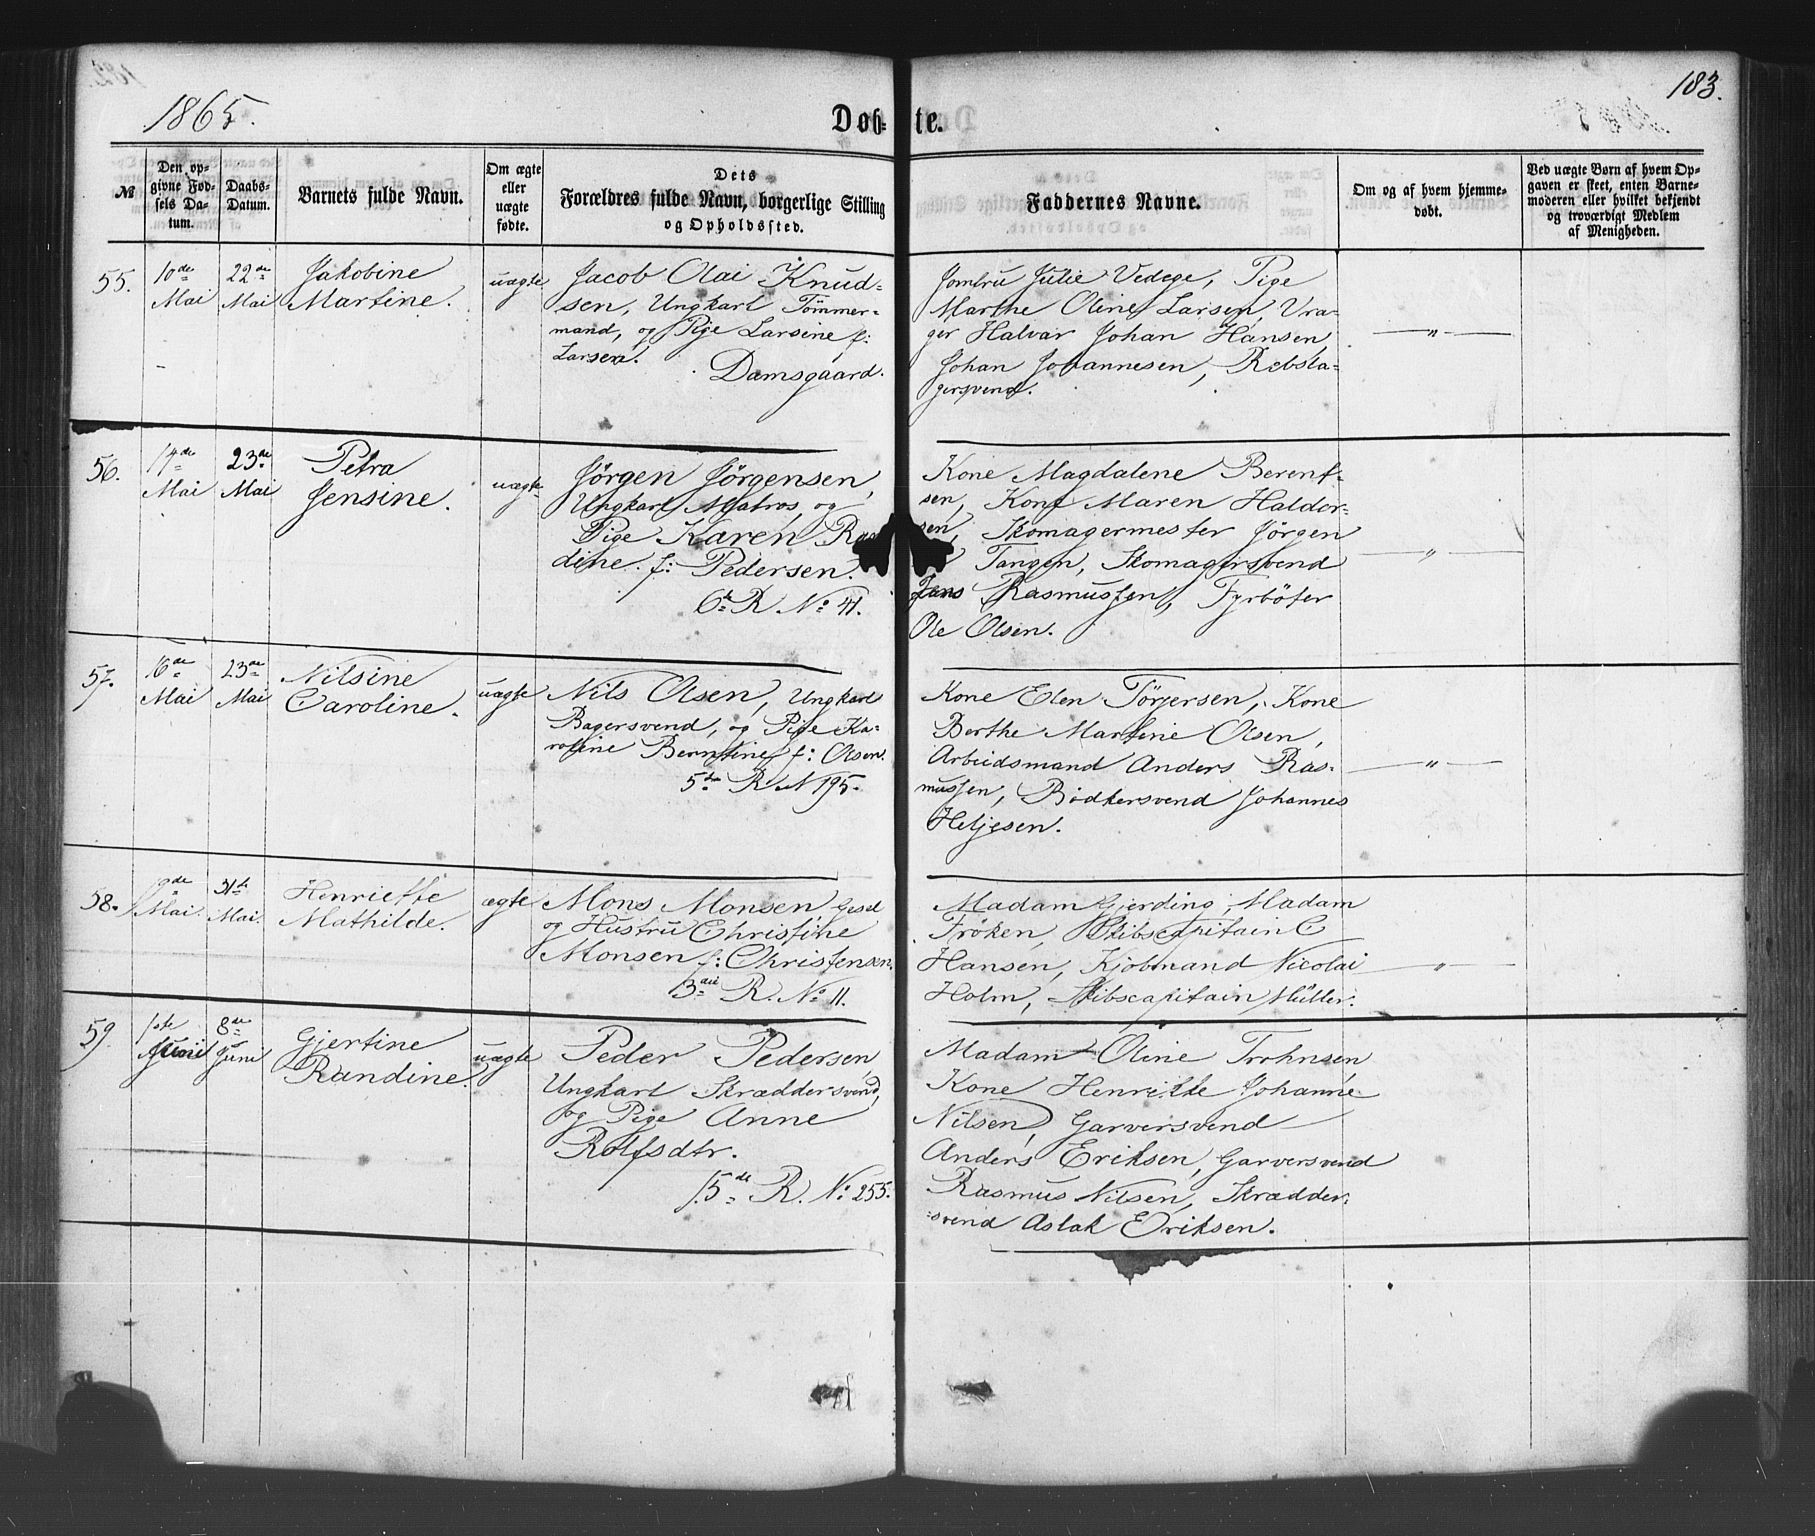 183.
1865.
Døbte.
№
Den opgivne Fødsels Datum.
Daabs-Datum.
Barnets fulde Navn.
Om ægte eller uægte fødte.
Dets Forældres fulde Navn, borgerlige Stilling og Opholdssted.
Faddernes Navne.
Om og af hvem hjemmedøbt.
Ved uægte Børn af hvem Opgaven er skeet, enten Barnemoderen eller hvilket bekjendt og troværdigt Medlem af Menigheden.
55.
10de Mai
22de Mai
Jakobine
Martine.
uægte
Jacob Olai Knud-
sen, Ungkarl Tømmer-
mand, og Pige Larsine f:
Larsen.
Damsgaard.
Jomfru Julie Vedege, Pige
Marthe Oline Larsen, Vra-
ger Halvar Johan Hansen,
Johan Johannesen, Rebsla-
gersvend.
— " —
56.
14de Mai
23de Mai
Petra
Jensine.
uægte
Jörgen Jörgensen,
Ungkarl Matros, og
Pige Karen
dine f: Pedersen.
6te R. No 41.
Kone Magdalene Berent-
sen, Kone Maren Haldor-
sen, Skomagermester Jörgen
Tangen, Skomagersvend
Jens Rasmussen, Fyrböter
Ole Olsen.
— " —
57.
16de Mai
23de Mai
Nilsine
Caroline.
uægte
Nils Olsen, Ungkarl
Bagersvend, og Pige Ka-
roline Berntine f: Olsen.
5te R N 195.
Kone Elen Törjersen, Kone
Berthe Martine Olsen,
Arbeidsmand Anders Ras-
mussen, Bödkersvend Johannes
Heljesen.
— " —
58.
Mai.
31te Mai.
Henriette
Mathilde.
ægte
Mons Monsen,
og Hustru Christine
Monsen f: Christensen.
R. No 11.
Madam Gjerding, Madam
Fröken, Skibscapitain C
Hansen, Kjøbmand Nicolai
Holm, Skibscapitain Müller.
— " —
59.
1ste Juni
8de Juni
Gjertine
Randine.
uægte
Peder Pedersen,
Ungkarl Skræddersvend,
og Pige Anne
Rolfsdtr.
15de R. No 255.
Madam Oline
Kone Henriette Johanne
Nilsen, Garversvend
Anders Eriksen, Garversvend
Rasmus Nilsen, Skrædder-
svend Aslak Eriksen.